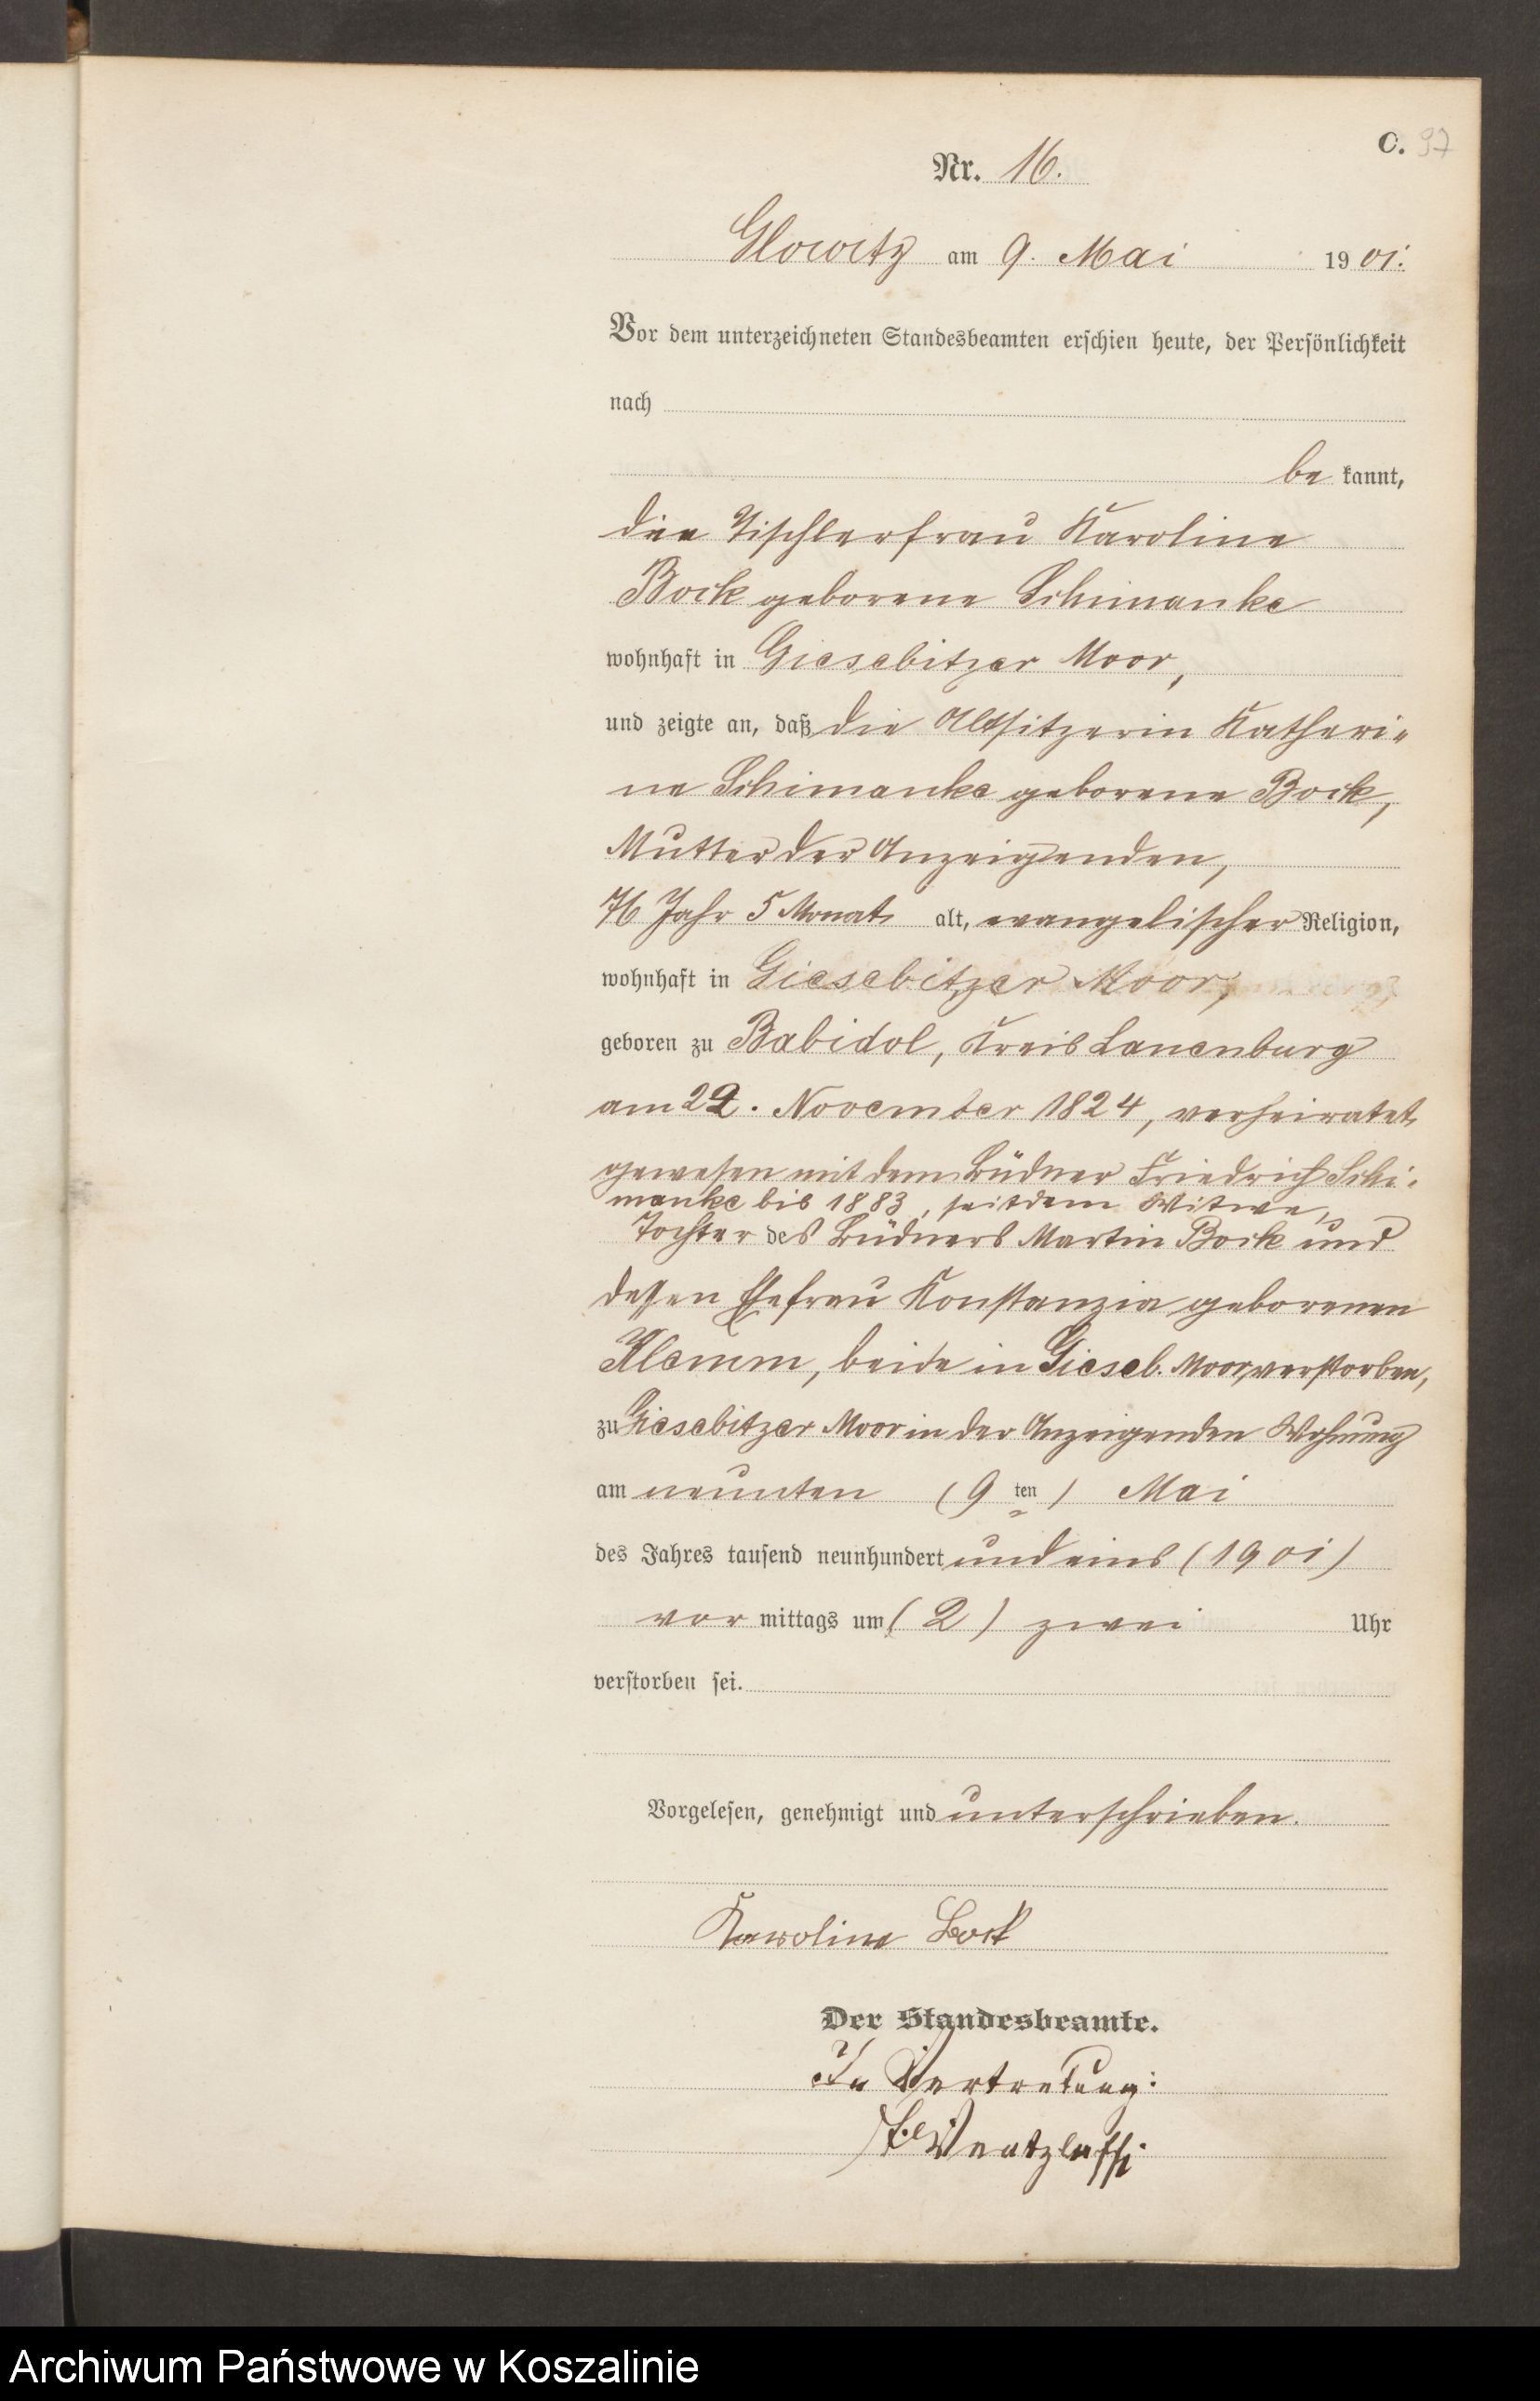 C. 97
Nr. 16.
Glowitz am 9. Mai 1901.
Vor dem unterzeichneten Standesbeamten erschien heute, der Persönlichkeit
nach
be kannt,
die Tischlerfrau Karoline
Bock geborene Schimanke
wohnhaft in Giesebitzer Moor,
und zeigte an, daß die Altsitzerin Katheri-
ne Schimanke geborene Bock,
Mutter der Anzeigenden,
76 Jahr 5 Monat alt, evangelischer Religion,
wohnhaft in Giesebitzer Moor,
geboren zu Babidol, Kreis Lauenburg
am 22. November 1824, verheiratet
gewesen mit dem Büdner Friedrich Schi-
manke bis 1883, seitdem Witwe,
Tochter des Büdners Martin Bock und
dessen Ehefrau Konstanzia geborenen
Klamm, beide in Gieseb. Moor verstorben,
zu Giesebitzer Moor in der Anzeigenden Wohnung
am neunten (9 ten) Mai
des Jahres tausend neunhundert und eins (1901)
vor mittags um (2) zwei Uhr
verstorben sei.
Vorgelesen, genehmigt und unterschrieben.
Karoline Bock
Der Standesbeamte.
In Vertretung:
Wentzlaff.
Archiwum Państwowe w Koszalinie